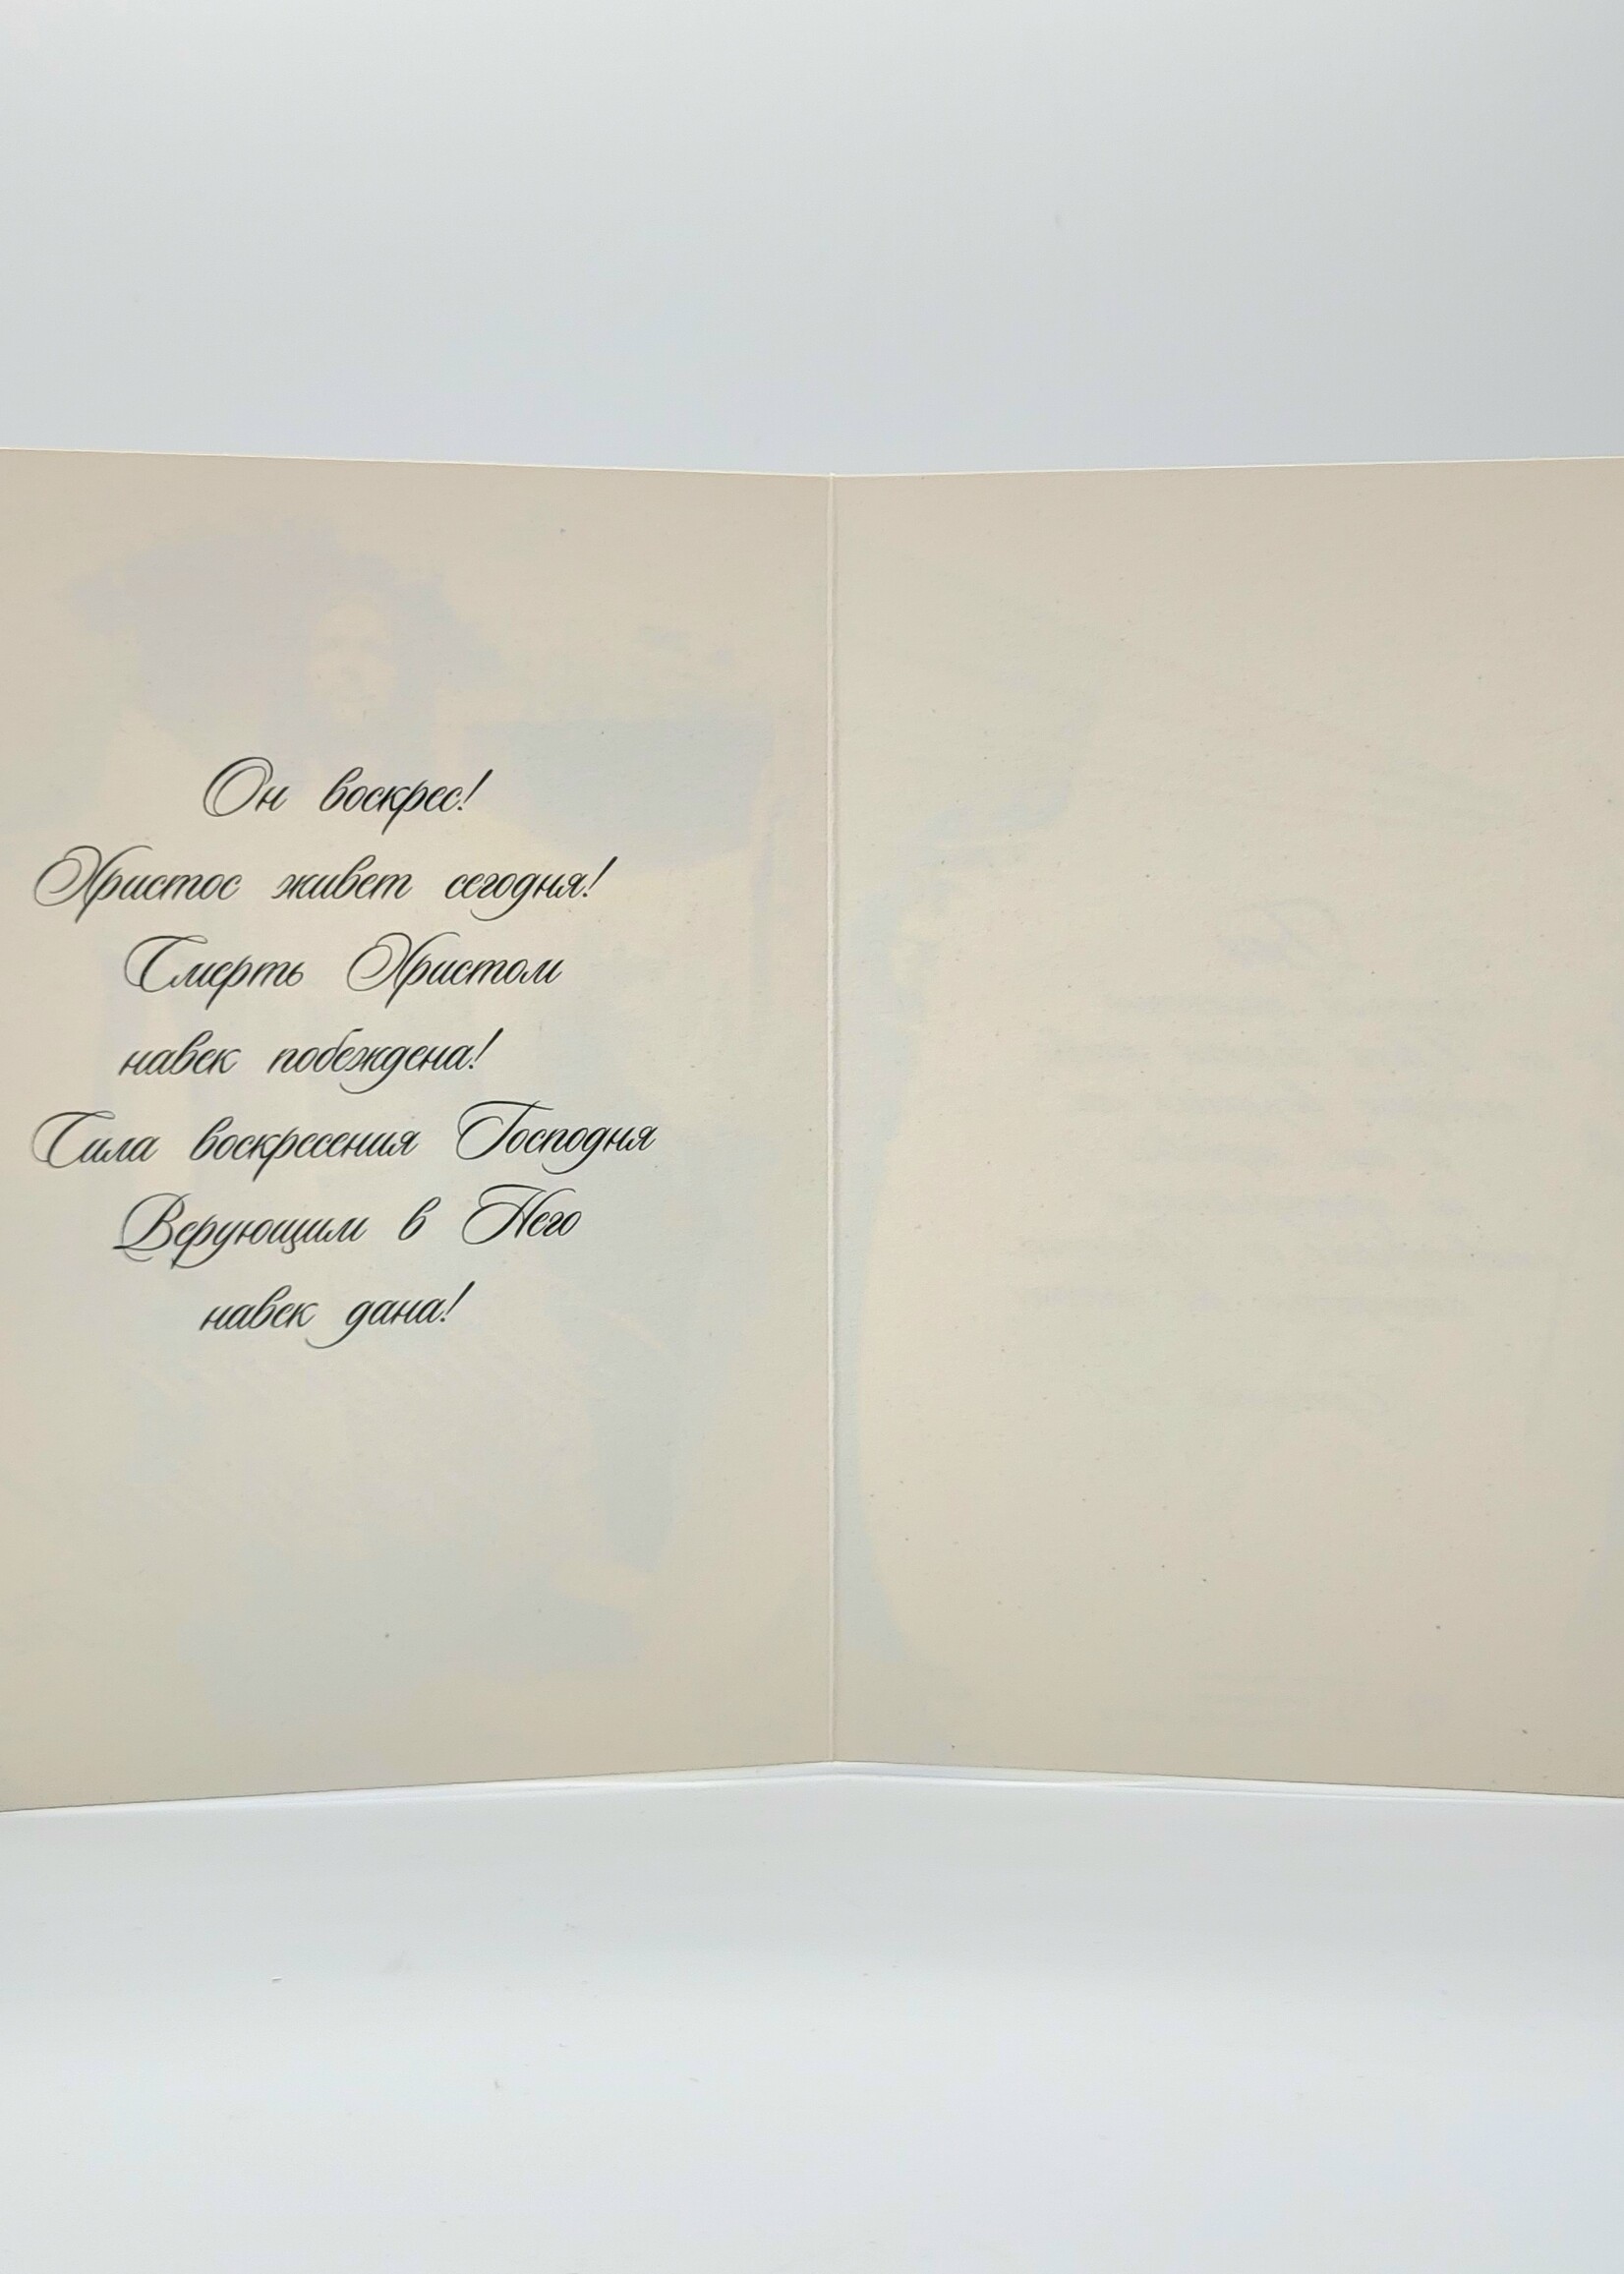 Он воскрес!
Христос живет сегодня!
Смерть Христом
навек побеждена!
Сила воскресения Господня
Верующим в Него
навек дана!